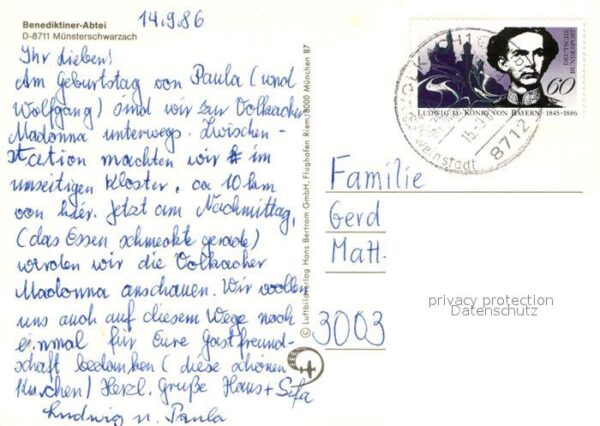 Benediktiner-Abtei
D-8711 Münsterschwarzach
14.9.86
Ihr Lieben!
Am Geburtstag von Paula (und
Wolfgang) sind wir zur Volkacher
Madonna unterwegs. Zwischen-
station machten wir im
umseitigen Kloster, ca 10 km
von hier. Jetzt am Nachmittag,
(das Essen schmeckte gerade)
werden wir die Volkacher
Madonna anschauen. Wir wollen
uns auch auf diesem Wege noch
einmal für Eure Gastfreund-
schaft bedanken (diese schönen
Kirschen) Herzl. Grüße Hans +
Ludwig u. Paula
© Luftbildverlag Hans Bertram GmbH, Flughafen Riem, 8000 München 87
DEUTSCHE BUNDESPOST
60
LUDWIG II · KÖNIG VON BAYERN · 1845-1886
VOLKACH 1
8712
Familie
Gerd
Matt
3003
privacy protection
Datenschutz